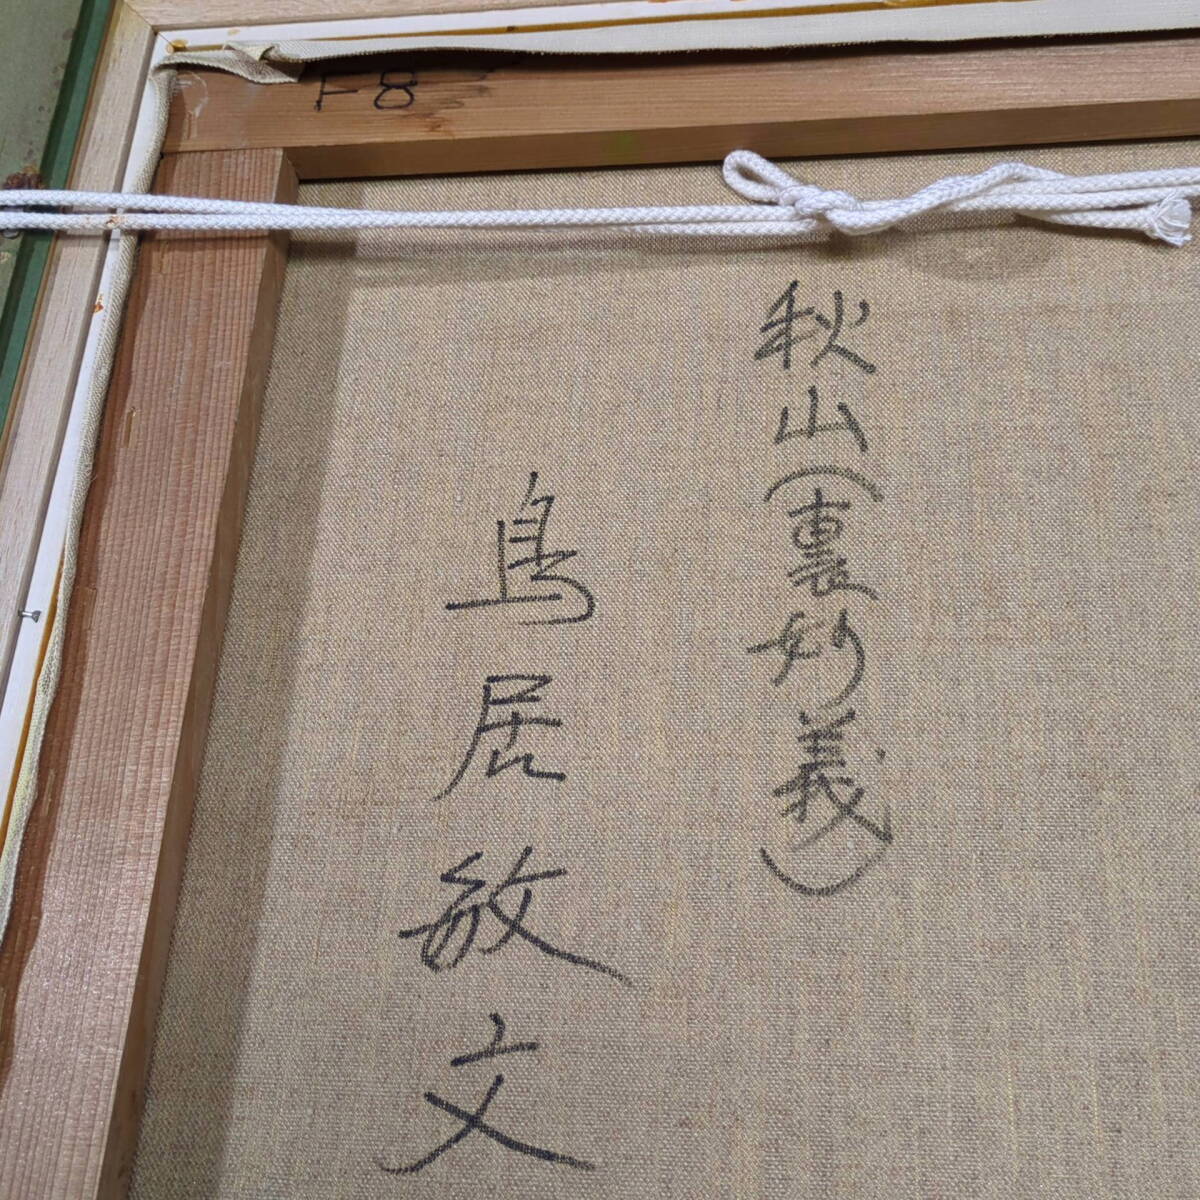 F8
秋山(裏妙義)
鳥居敏文